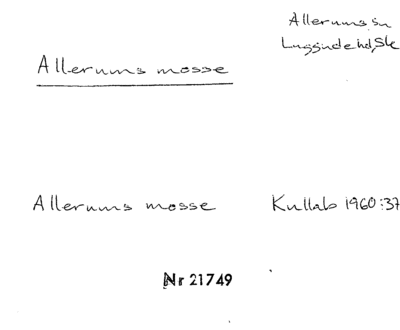 Allerums sn
Luggude hd, Sk
Allerums mosse
Allerums mosse Kullab 1960:37
Nr 21749